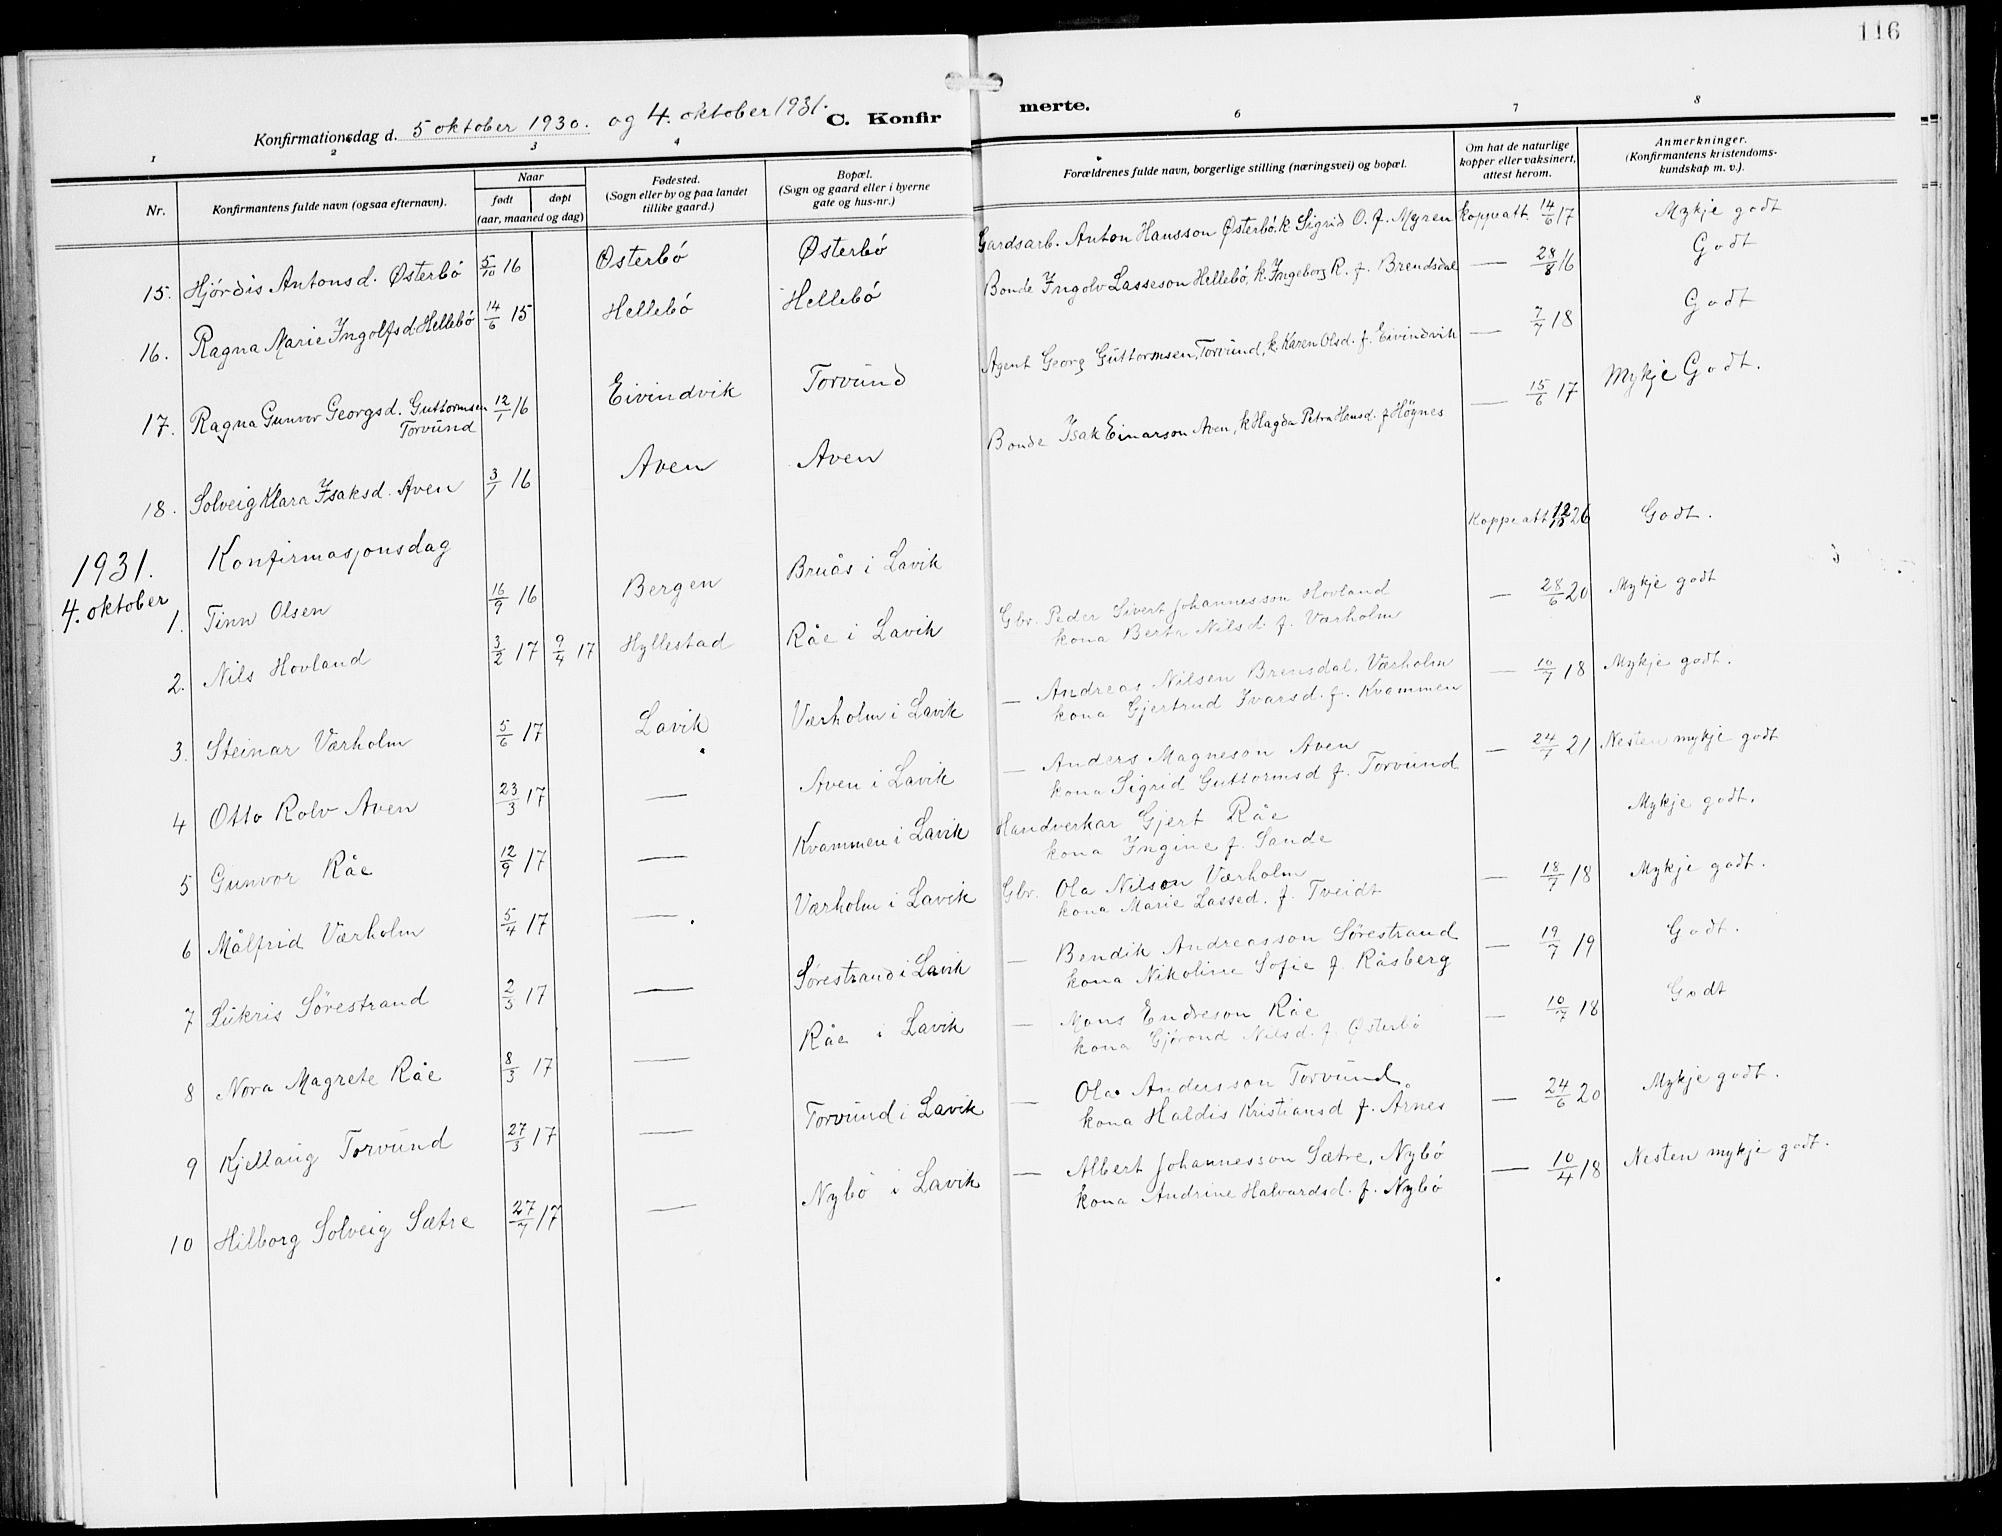 116
Konfirmationsdag d. 5 oktober 1930. og 4. oktober 1931. C. Konfir merte.
1 2 3 4 6 7 8
Nr.
Konfirmantens fulde navn (ogsaa efternavn).
Naar
født døpt
(aar, maaned og dag)
Fødested.
(Sogn eller by og paa landet
tillike gaard.)
Bopæl.
(Sogn og gaard eller i byerne
gate og hus-nr.)
Forældrenes fulde navn, borgerlige stilling (næringsvei) og bopæl.
Om hat de naturlige
kopper eller vaksinert,
attest herom.
Anmerkninger.
(Konfirmantens kristendoms-
kundskap m. v.).
15. Hjördis Antonsd. Østerbö 5/10 16 Østerbö Østerbö Gardsarb. Anton Hansson Østerbö, k. Sigrid O. f. Myren Koppeatt. 14/6 17 Mykje godt
16. Ragna Marie Ingolfsd. Hellebö 14/6 15 Hellebö Hellebö Bonde Ingolv Lasseson Hellebö, k. Ingeborg R. f. Brendsdal — 28/8 16 Godt
17. Ragna Gunvor Georgsd. Guttormsen 12/1 16 Eivindvik Torvund Agent Georg Guttormsen, Torvund, k. Karen Olsd. f. Eivindvik — 7/7 18 Godt
Torvund
18. Solveig Klara Isaksd. Aven 3/1 16 Aven Aven Bonde Isak Einarson Aven, k Magda Petra Hansd. f Höynes — 15/6 17 Mykje Godt.
1931. Konfirmasjonsdag
4. oktober
1. Finn Olsen 16/9 16 Bergen Bruås i Lavik Koppeatt 26 Godt.
2. Nils Hovland 3/2 17 9/4 17 Hyllestad Råe i Lavik Gbr. Peder Sivert Johannesson Hovland — 28/6 20 Mykje godt
kona Berta Nilsd. f. Værholm
3. Steinar Værholm 5/6 17 Lavik Værholm i Lavik — Andreas Nilsen Brensdal, Værholm — 10/7 18 Mykje godt.
kona Gjertrud Ivarsd. f. Kvammen
4 Otto Rolv Aven 23/3 17 — Aven i Lavik — Anders Magneson Aven — 24/7 21 Nesten mykje godt
kona Sigrid Guttormsd f. Torvund
5 Gunvor Råe 12/9 17 — Kvammen i Lavik Handverkar Gjert Råe Mykje godt.
kona Ingine f. Sande
6 Målfrid Værholm 5/4 17 — Værholm i Lavik Gbr. Ola Nilson Værholm — 18/7 18 Mykje godt.
kona Marie Lassed. f. Tveidt
7 Lukris Sörestrand 2/5 17 — Sörestrand i Lavik — Bendik Andreasson Sörestrand — 19/7 19 Godt.
kona Nikoline Sofie f. Råsberg
8 Nora Magrete Råe 8/3 17 — Råe i Lavik — Mons Endreson Råe — 10/7 18 Godt
kona Gjörond Nilsd. f. Østerbö
9 Kjellaug Torvund 27/3 17 — Torvund i Lavik — Ola Andersson Torvund — 24/6 20 Mykje godt.
kona Haldis Kristiansd f. Årnes
10 Hilborg Solveig Sætre 27/7 17 — Nybö i Lavik — Albert Johannesson Sætre, Nybö — 10/4 18 Nesten mykje godt.
kona Andrine Halvardsd. f. Nybö